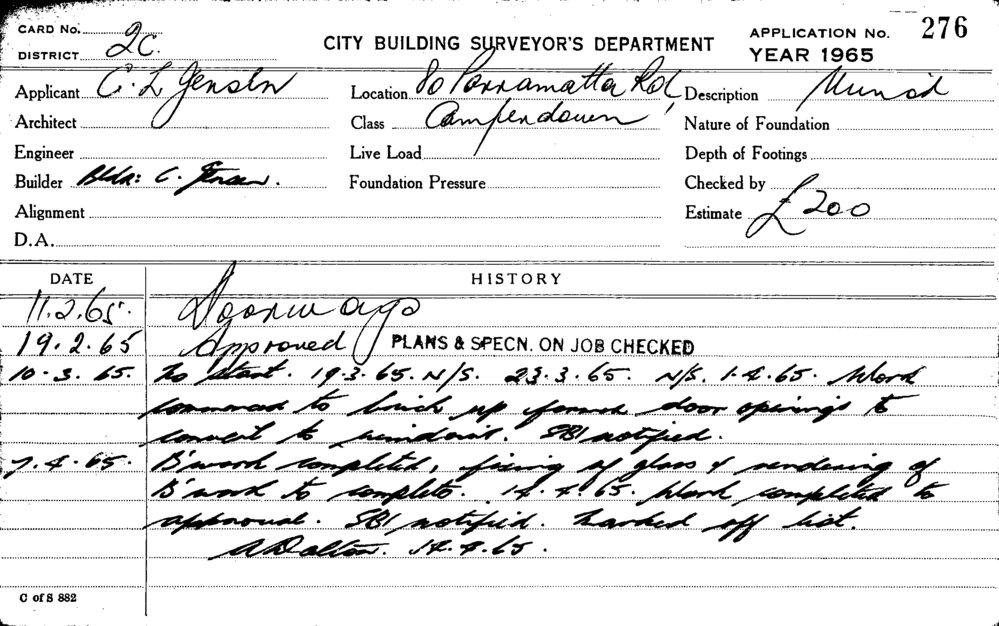 CARD No.
DISTRICT 2c.
CITY BUILDING SURVEYOR'S DEPARTMENT
APPLICATION No. 276
YEAR 1965
Applicant C. L Jensen
Location 80 Parramatta Rd,
Description
Architect
Class Camperdown
Nature of Foundation
Engineer
Live Load
Depth of Footings
Builder Bldr: C. Jensen.
Foundation Pressure
Checked by
Alignment
Estimate £200
D.A.
DATE HISTORY
11.2.65. Doorways
19.2.65 Approved PLANS & SPECN. ON JOB CHECKED
10.3.65. To start. 19.3.65. N/S. 23.3.65. N/S. 1.4.65. Work
commenced to brick up former door openings to
convert to windows. SBI notified.
7.4.65. B'work completed, fixing of glass & rendering of
B'work to complete. 14.4.65. Work completed to
approval. SBI notified. Marked off list.
A Dalton. 14.4.65.
C of S 882